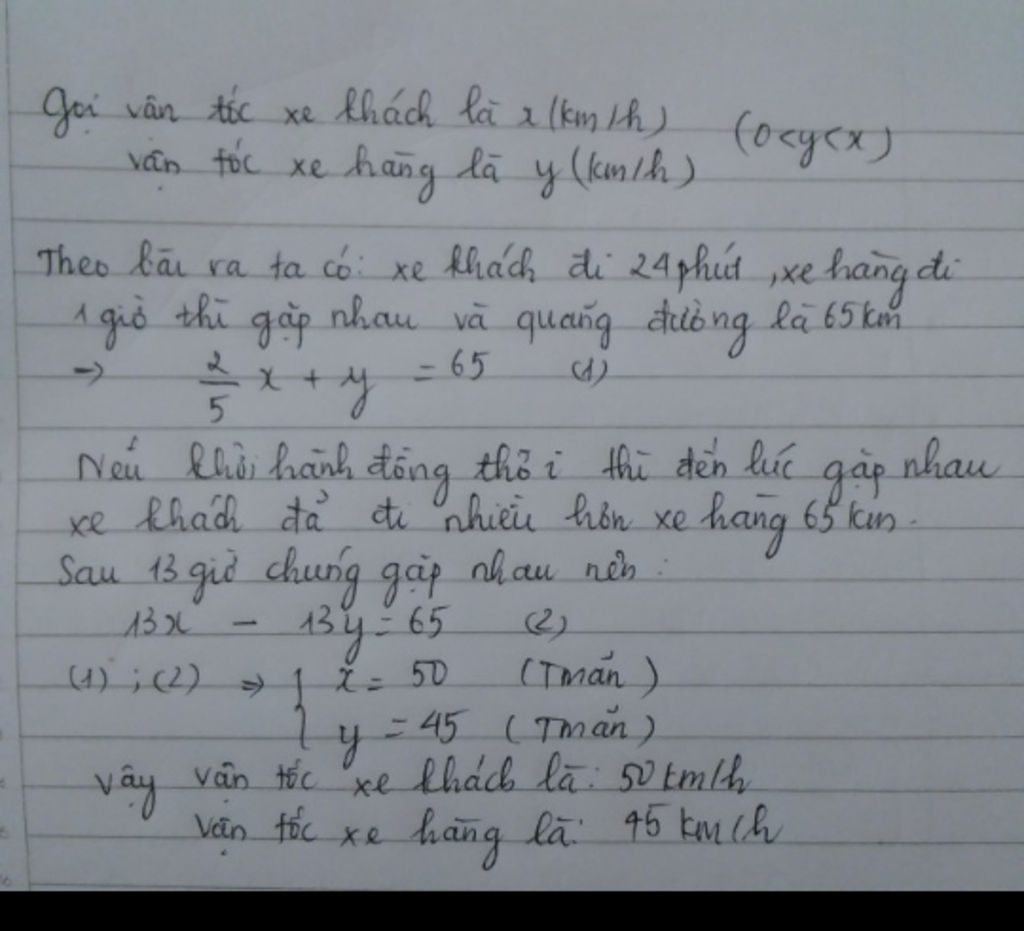 Gọi vận tốc xe khách là x (km/h) (0<y<x)
vận tốc xe hàng là y (km/h)
Theo bài ra ta có: xe khách đi 24 phút, xe hàng đi
1 giờ thì gặp nhau và quãng đường là 65 km
→ 2/5 x + y = 65 (1)
Nếu khởi hành đồng thời thì đến lúc gặp nhau
xe khách đã đi nhiều hơn xe hàng 65 km.
Sau 13 giờ chúng gặp nhau nên:
13x - 13y = 65 (2)
(1) ; (2) ⇒ { x = 50 (Tmãn)
y = 45 (Tmãn)
Vậy vận tốc xe khách là: 50 km/h
Vận tốc xe hàng là: 45 km/h